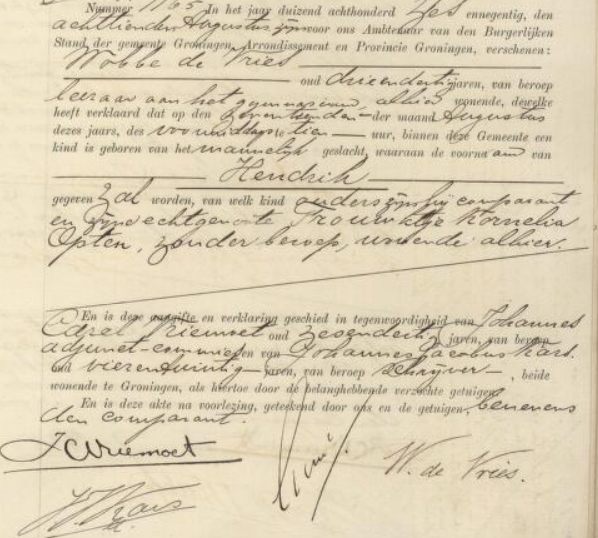 Nummer 1165 In het jaar duizend achthonderd zes ennegentig, den
achttienden Augustus zijn voor ons Ambtenaar van den Burgerlijken
Stand, der gemeente Groningen, Arrondissement en Provincie Groningen, verschenen:
Wobbe de Vries
oud drieendertig jaren, van beroep
leeraar aan het gymnasium, alhier wonende, dewelke
heeft verklaard dat op den zeventienden der maand Augustus
dezes jaars, des voormiddags te tien uur, binnen deze Gemeente een
kind is geboren van het mannelijk geslacht, waaraan de voornaam van
Hendrik
gegeven zal worden, van welk kind ouders zijn hij comparant
en zijne echtgenoote Trouwktje Kornelia
Opten, zonder beroep, wonende alhier.
En is deze aangifte en verklaring geschied in tegenwoordigheid van Johannes
Carel Vriemoet oud zesendertig jaren, van beroep
adjunct-commies en van Johannes Jacobus Kars
oud vierentwintig jaren, van beroep schrijver, beide
wonende te Groningen, als hiertoe door de belanghebbende verzochte getuigen.
En is deze akte na voorlezing, geteekend door ons en de getuigen, benevens
den comparant.
J C Vriemoet
W. de Vries.
J J Kars